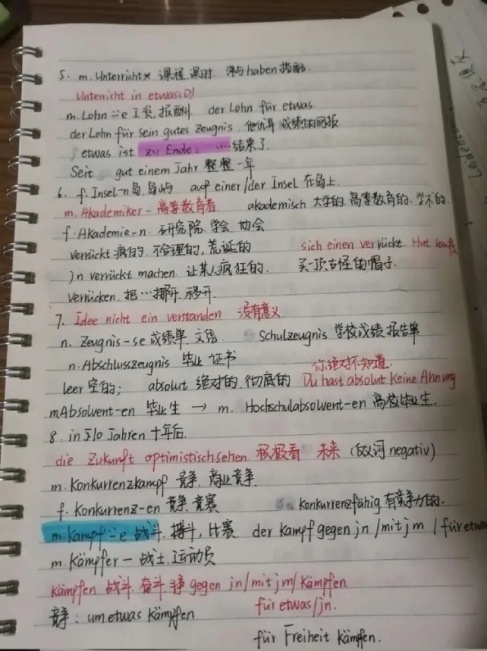 5. m. Unterricht x 课程 课时 常与haben搭配
Unterricht in etwas(D)
m. Lohn ¨e 工资, 报酬 der Lohn für etwas
der Lohn für sein gutes Zeugnis 他优异成绩的回报
etwas ist zu Ende. ...结束了
Seit gut einem Jahr 整整一年
6. f. Insel-n 岛, 岛屿 auf einer/der Insel 在岛上
m. Akademiker - 高等教育者 akademisch 大学的, 高等教育的, 学术的
f. Akademie-n 研究院, 学会, 协会
verrückt 疯的, 不合理的, 荒诞的 sich einen verrückte Hut kaufen
jn verrückt machen 让某人疯狂的. 买一顶古怪的帽子
verrücken 把…挪开, 移开
7. Idee nicht ein verstanden 没有意义
n. Zeugnis-se 成绩单 文凭 Schulzeugnis 学校成绩报告单
n. Abschlusszeugnis 毕业证书 你绝对不知道.
leer 空的; absolut 绝对的, 彻底的 Du hast absolut keine Ahnung
m Absolvent-en 毕业生 → m. Hochschulabsolvent-en 高校毕业生.
8. in 5/10 Jahren 十年后.
die Zukunft optimistisch sehen 积极看 未来 (反词 negativ)
m. Konkurrenzkampf 竞争, 商业竞争
f. Konkurrenz-en 竞争, 竞赛 konkurrenzfähig 有竞争力的.
m. Kampf ¨e 战斗, 搏斗, 比赛 der Kampf gegen jn /mit jm /für etwas
m. Kämpfer - 战士, 运动员
kämpfen 战斗, 奋斗, 争 gegen jn/mit jm/ kämpfen
竞争: um etwas kämpfen für etwas/jn.
für Freiheit kämpfen.